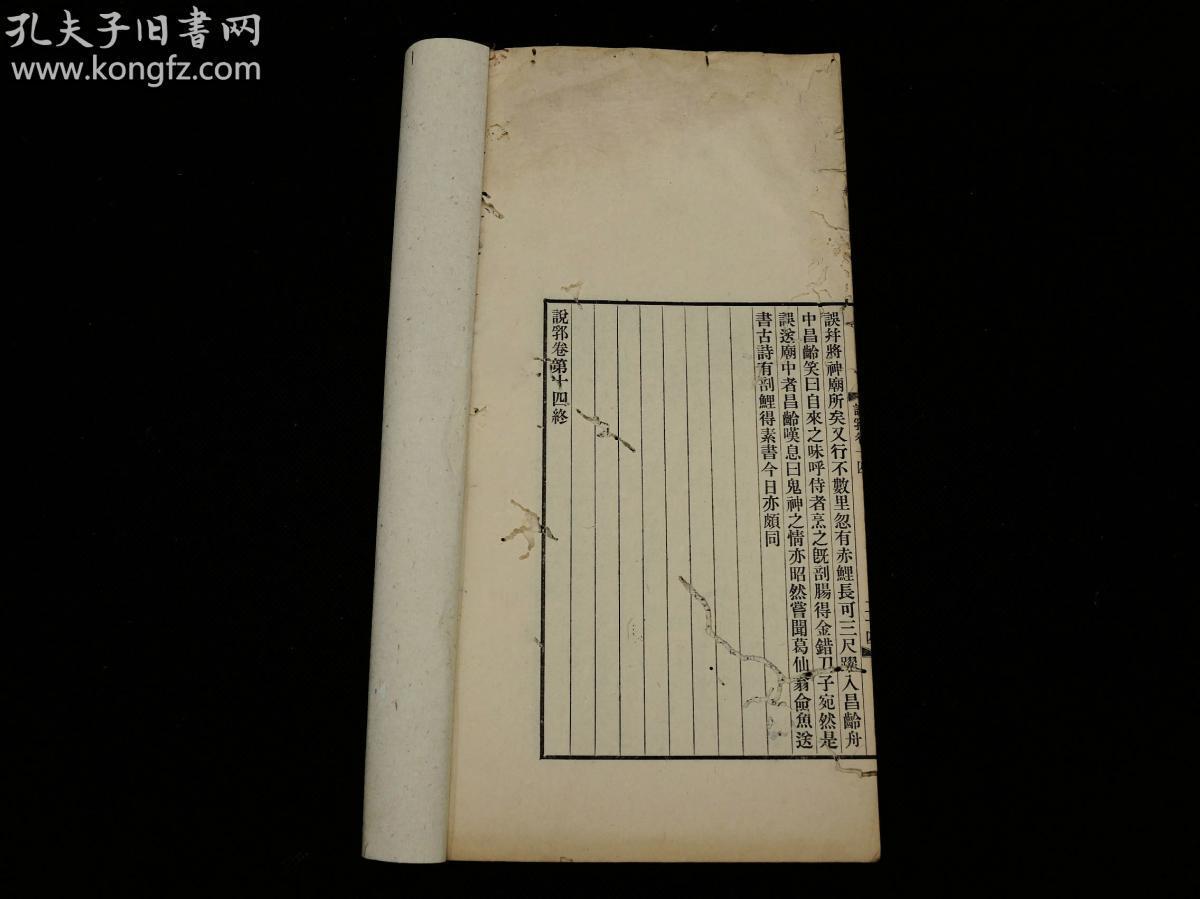 孔夫子旧书网
www.kongfz.com
誤幷將神廟所矣又行不數里忽有赤鯉長可三尺躍入昌齡舟
中昌齡笑曰自來之味呼侍者烹之旣剖腸得金錯刀子宛然是
誤送廟中者昌齡嘆息曰鬼神之情亦昭然嘗聞葛仙翁侖魚送
書古詩有剖鯉得素書今日亦頗同
說郛卷第十四終